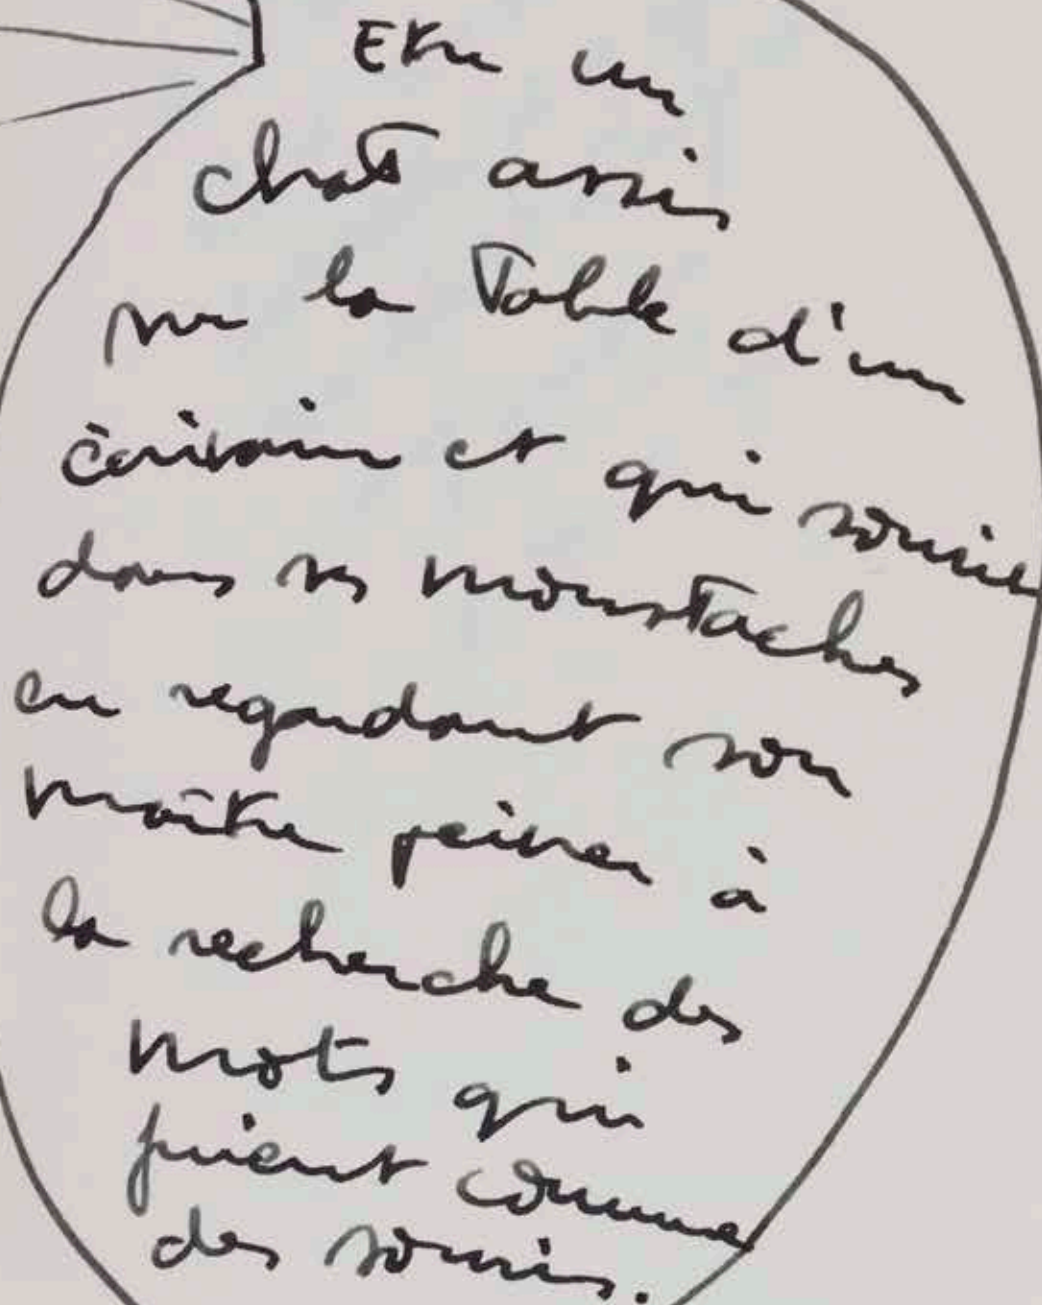 Etre un
chat assis
sur la Table d'un
écrivain et qui sourit
dans ses moustaches
en regardant son
maître peiner à
la recherche des
mots qui
fuient comme
des souris.